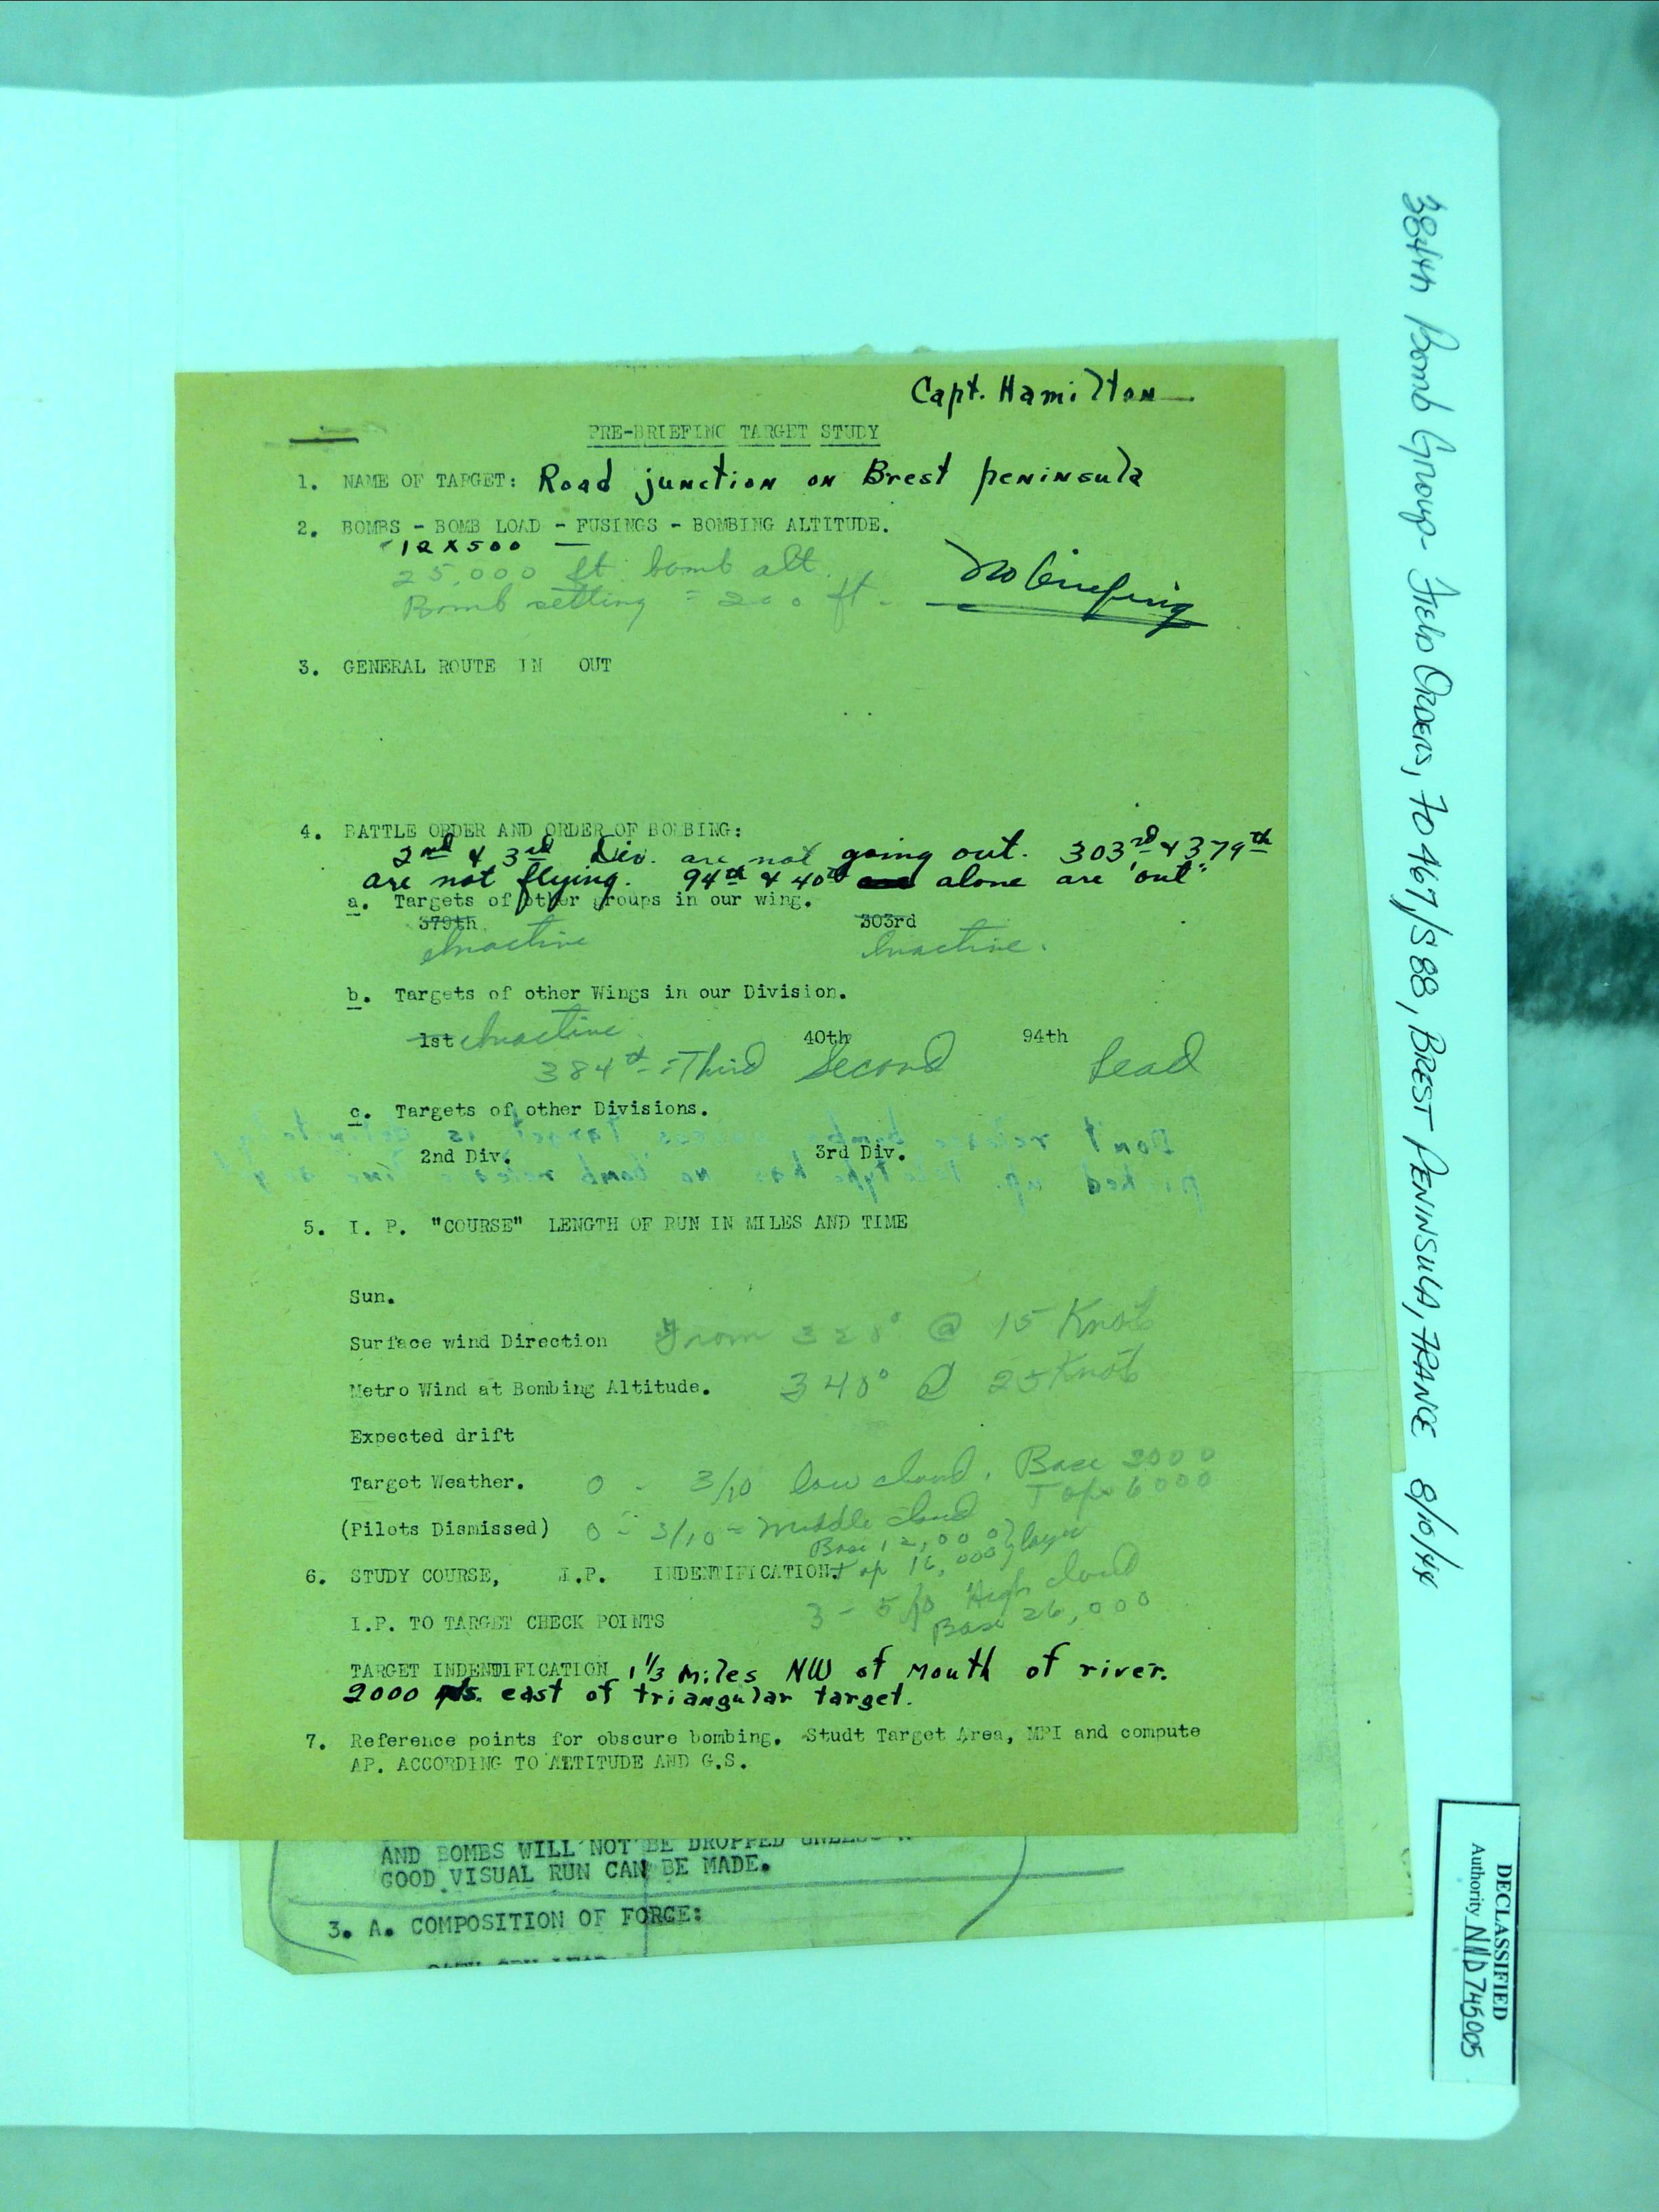 Capt. Hamilton
PRE-BRIEFING TARGET STUDY
1. NAME OF TARGET: Road junction on Brest peninsula
2. BOMBS - BOMB LOAD - FUSINGS - BOMBING ALTITUDE.
12 X 500
25,000 ft. bomb alt.
Bomb setting = 200 ft.
No briefing
3. GENERAL ROUTE IN OUT
4. BATTLE ORDER AND ORDER OF BOMBING:
2nd & 3rd Div. are not going out. 303rd & 379th
are not flying. 94th & 40th alone are "out"
a. Targets of other groups in our wing.
379th 303rd
Inactive Inactive.
b. Targets of other Wings in our Division.
1st Inactive 40th 94th
384th = Third Second Lead
c. Targets of other Divisions.
Don't release bombs unless target is definitely
2nd Div. 3rd Div.
picked up. Teletype has no bomb release line
5. I. P. "COURSE" LENGTH OF RUN IN MILES AND TIME
Sun.
Surface wind Direction From 320° @ 15 Knots
Metro Wind at Bombing Altitude. 340° @ 25 Knots
Expected drift
Targot Weather. 0 - 3/10 low cloud. Base 3000
Tops 6000
(Pilots Dismissed) 0 - 3/10 - Middle cloud
Base 12,000 } layer
6. STUDY COURSE, I.P. INDENTIFICATION. Top 16,000
3 - 5/10 High cloud
I.P. TO TARGET CHECK POINTS Base 26,000
TARGET INDENTIFICATION 1 1/3 Miles NW of Mouth of river.
2000 east of triangular target.
7. Reference points for obscure bombing. Studt Target Area, MPI and compute
AP. ACCORDING TO ALTITUDE AND G.S.
AND BOMBS WILL NOT BE DROPPED UNLESS A
GOOD VISUAL RUN CAN BE MADE.
3. A. COMPOSITION OF FORCE:
384th Bomb Group - Field Orders, FO 467/S 88, BREST PENINSULA, FRANCE 8/10/44
DECLASSIFIED
Authority NND 745005